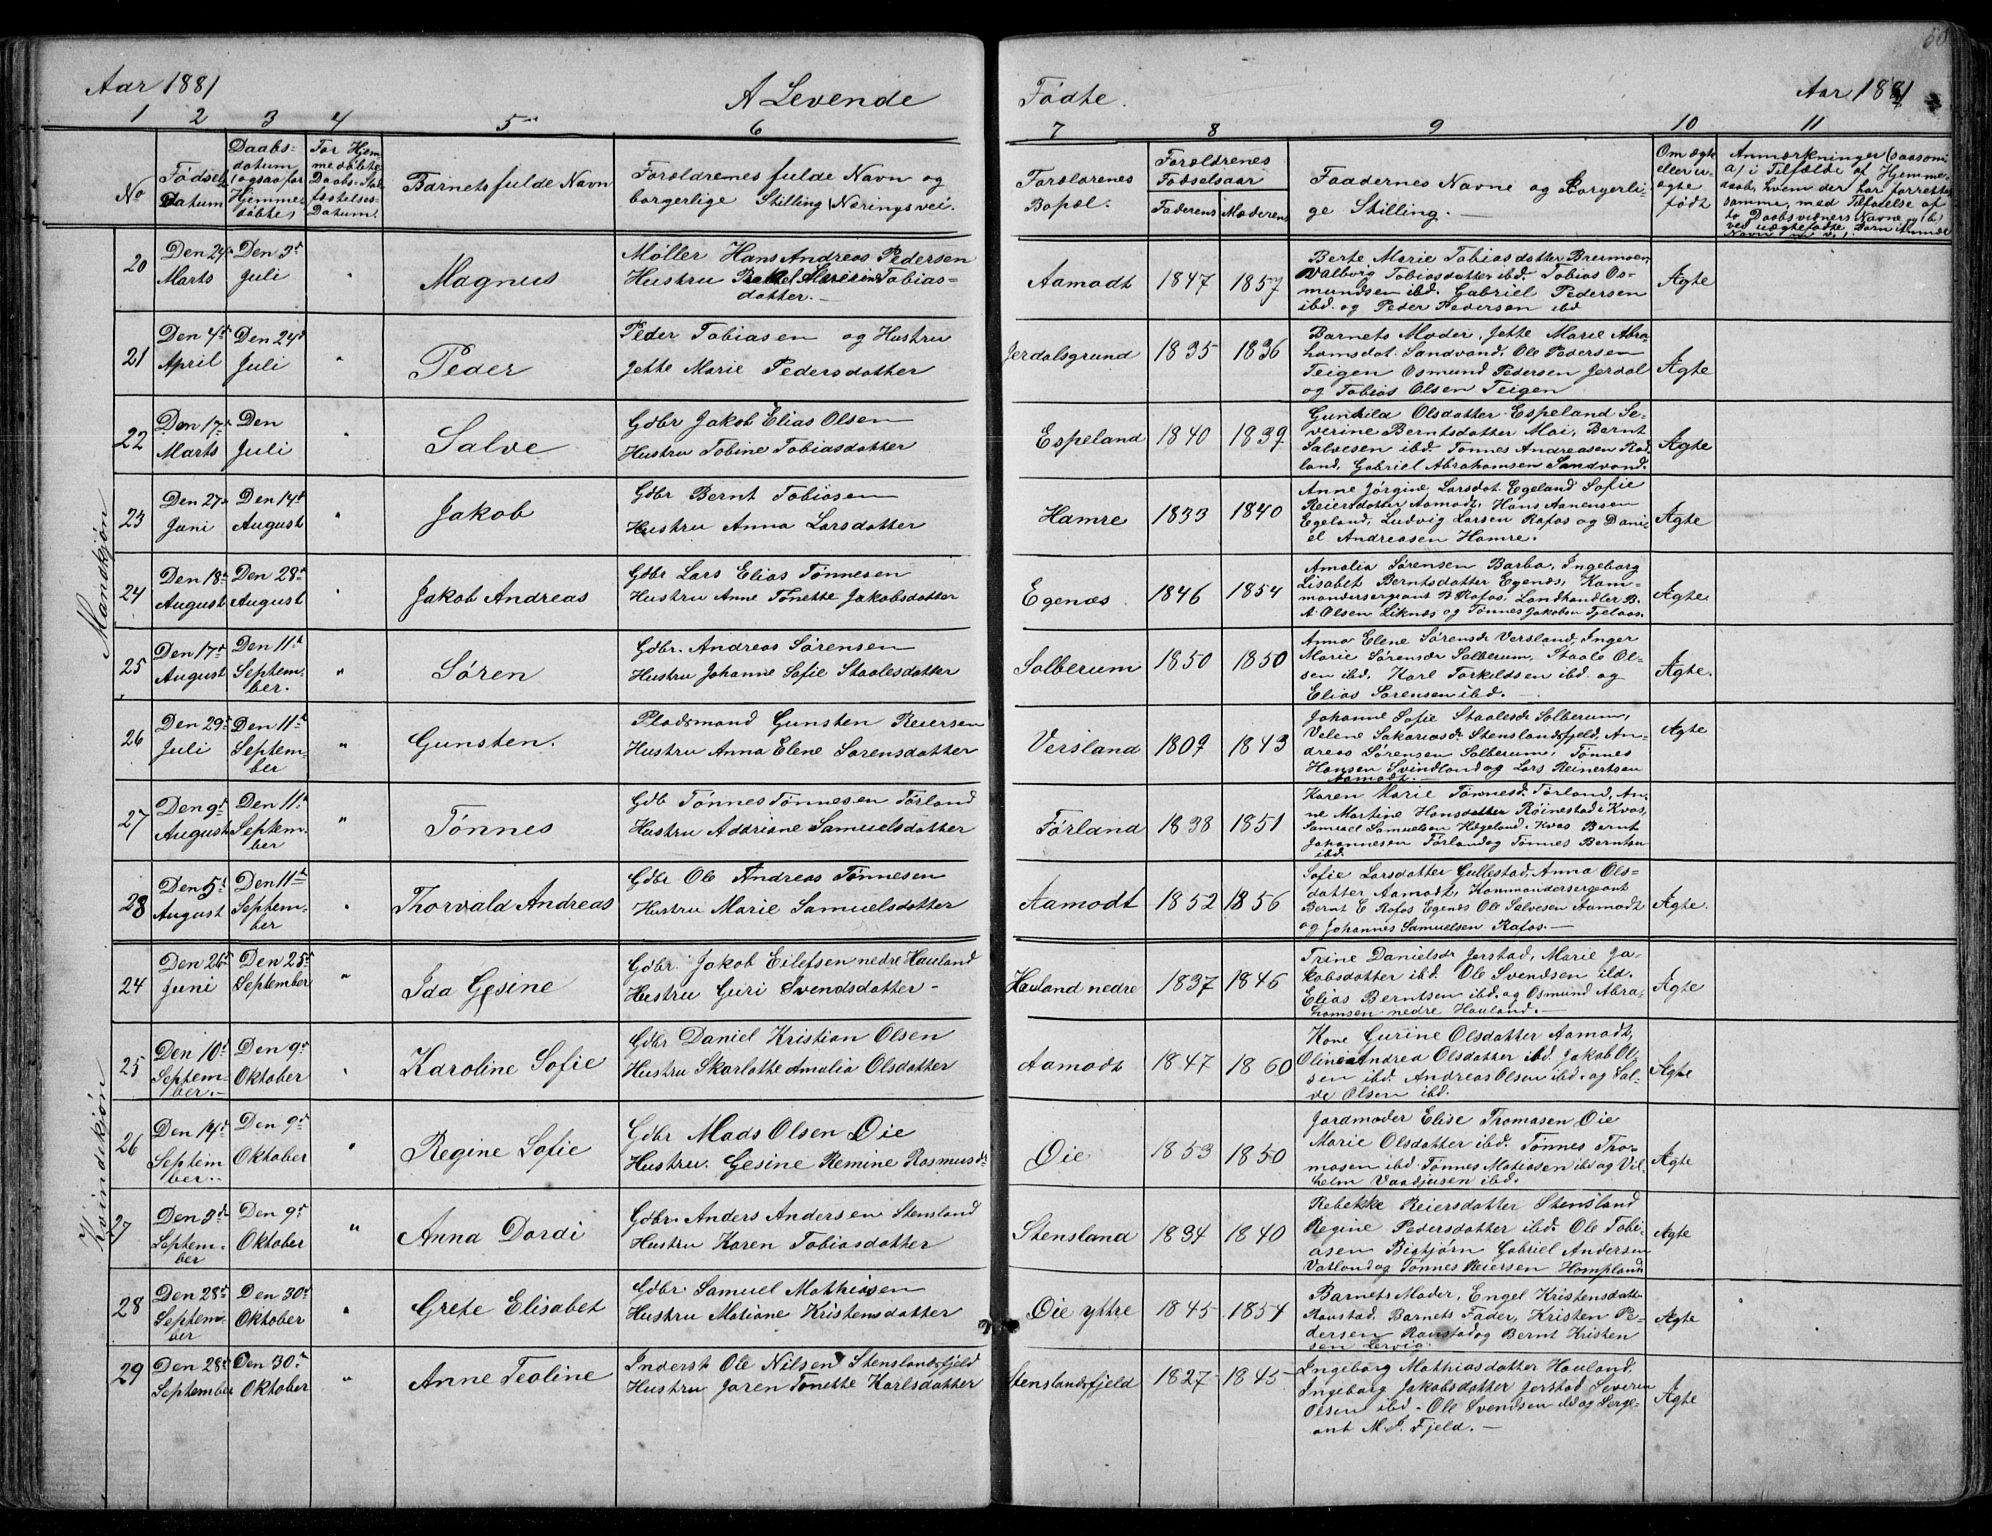 50
Aar 1881 A Levende Fødte. Aar 1881
1 2 3 4 5 6 7 8 9 10 11
No
Fødsels
Datum
Daabs-
datum
(ogsaa for
Hjemme-
døbte)
For Hjem-
medøbte
Daabs-Stad-
festelses-
Datum.
Barnets fulde Navn
Forældrenes fulde Navn og
borgerlige Stilling (Næringsvei.
Forældrenes
Bopæl.
Forældrenes
Fødselsaar
Faderens Moderens
Faddernes Navne og Borgerli-
ge Stilling.
Om ægte
eller u-
ægte
født
Anmærkninger (saasom
a) i Tilfælde af Hjemme-
daab, hvem der har forrettet
samme, med Tilføielse af
to Daabsvidners Navne, b)
ved uægtefødte Børn
Mandkjøn
20 Den 24de Marts
Den 3die Juli
"
Magnus
Møller Hans Andreas Pedersen
Hustru Marie Tobias-
datter.
Aamodt 1847 1857
Berte Marie Tobiasdatter Bremoen
Valborg Tobiasdatter ibd. Tobias Os-
mundsen ibd. Gabriel Pedersen
ibd. og Peder Pedersen ibd
Ægte
21 Den 4de April
Den 24de Juli
"
Peder
Peder Tobiasen og Hustru
Jette Marie Pedersdatter
Jerdalsgrund 1835 1836
Barnets Moder, Jette Marie Abra-
hamsdat. Sandvand, Ole Pedersen
Teigen Osmund Pedersen Jerdal
og Tobias Olsen Teigen
Ægte
22 Den 17de Marts
Den Juli
"
Salve
Gdbr Jakob Elias Olsen
Hustru Tobine Tobiasdatter
Espeland 1840 1839
Gunhild Olsdatter Espeland Se-
verine Berntsdatter Moi, Bernt
Salvesen ibd. Tønnes Andreasen Rød-
land, Gabriel Abrahamsen Sandvand.
Ægte
23 Den 27de Juni
Den 14de August
"
Jakob
Gdbr Bernt Tobiasen
Hustru Anna Larsdatter
Hamre 1833 1840
Anne Jørgine Larsdat. Egeland Sofie
Reiersdatter Aamodt, Hans Aanensen
Egeland, Ludvig Larsen Rafos og Dani-
el Andreasen Hamre.
Ægte
24 Den 18de August
Den 28de August
"
Jakob Andreas
Gdbr Lars Elias Tønnesen
Hustru Anne Tonette Jakobsdatter
Egenæs 1846 1854
Amalia Sørensen Barbo, Ingeborg
Lisabet Berntsdatter Egenæs, Kom-
mandersergeant B. Rafos, Landhandler B.
A. Olsen Liknæs og Tønnes Jakobsen Fjelaas.
Ægte.
25 Den 17de August
Den 11te Septem-
ber.
"
Søren
Gdbr. Andreas Sørensen
Hustru Johanne Sofie Staalesdatter
Solberum 1850 1850
Anna Elene Sørensdr Versland, Inger
Marie Sørensdr Solberum, Staale Ol-
sen ibd. Karl Torkildsen ibd og
Elias Sørensen ibd.
Ægte.
26 Den 29de Juli
Den 11te Septem-
ber
"
Gunsten.
Pladsmand Gunsten Reiersen
Hustru Anna Elene Sørensdatter
Versland 1809 1843
Johanne Sofie Staalesdr Solberum,
Velene Sakariasdr Stenslandsfjeld, An-
dreas Sørensen Solberum, Tønnes
Hansen Svindland og Lars Reinertsen
Aamodt.
Ægte
27 Den 9de August
Den 11te Septem-
ber
"
Tønnes
Gdb Tønnes Tønnesen Førland
Hustru Adriane Samuelsdatter
Førland 1838 1851
Karen Marie Tønnesd. Førland, An-
ne Martine Hansdatter Røinestad i Kvas,
Samuel Samuelsen Hægeland, Kvas Bernt
Johannesen Førland og Tønnes Berntsen
ibd.
28 Den 5te August
Den 11te Septem-
ber
"
Thorvald Andreas
Gdbr Ole Andreas Tønnesen
Hustru Marie Samuelsdatter
Aamodt 1852 1856
Sofie Larsdatter Gullestad, Anna Ols-
datter Aamodt, Kommandersergeant
Bernt E Rafos Egenæs Ole Salvesen Aamodt
og Johannes Samuelsen Rafos.
Ægte.
Kvindekjøn
24 Den 26de Juni
Den 25de September
"
Ida Gesine
Gdbr. Jakob Eilefsen nedre Hauland
Hustru Guri Svendsdatter
Hauland nedre 1837 1846
Trine Danielsdr Jerstad, Marie Ja-
kobsdatter ibd. Ole Svendsen ibd.
Elias Berntsen ibd. og Osmund Abra-
hamsen nedre Hauland.
Ægte
25 Den 10de Septem-
ber.
Den 9de Oktober
"
Karoline Sofie
Gdbr Daniel Kristian Olsen
Hustru Skarlotte Amalia Olsdatter
Aamodt 1847 1860
Kone Gurine Olsdatter Aamodt,
Oline Andrea Olsdatter ibd. Jakob Ol-
sen ibd. Andreas Olsen ibd. og Sal-
ve Olsen ibd.
Ægte
26 Den 14de Septem
ber.
Den 9de Oktober
"
Regine Sofie
Gdbr Mads Olsen Øie
Hustru. Gesine Remine Rasmusdr
Øie 1853 1850
Jordmoder Elise Tomasen Øie
Marie Olsdatter ibd. Tønnes Tho-
masen ibd. Tønnes Matiasen ibd og Vil-
helm ibd.
Ægte
27 Den 3de Septem-
ber
Den 9de Oktober
"
Anna Dordi
Gdbr. Anders Andersen Stensland
Hustru Karen Tobiasdatter
Stensland 1834 1840
Rebekke Reiersdatter Stensland
Regine Pedersdatter ibd. Ole Tobi-
asen Bigtjørn Gabriel Andersen
Vatland og Tønnes Reiersen Hompland
Ægte
28 Den 28de Septem-
ber
Den 30te Oktober
"
Grete Elisabet
Gdbr. Samuel Mathiasen
Hustru Matiane Kristensdatter
Øie yttre 1845 1854
Barnets Moder, Engel Kristensdatter
Raustad, Barnets Fader, Kristen Pe-
dersen Raustad og Bernt Kristen
sen Lervig.
Ægte
29 Den 28de September
Den 30te Oktober
"
Anne Teoline
Inderst Ole Nilsen Stenslandsfjeld
Hustru Jaren Tonette Karlsdatter
Stenslandsfjeld 1827 1845
Ingeborg Mathiasdatter Hauland,
Ingeborg Jakobsdatter Jerstad Severin
Olsen ibd. Ole Svendsen ibd og Serge-
ant M. J. Fjeld.
Ægte